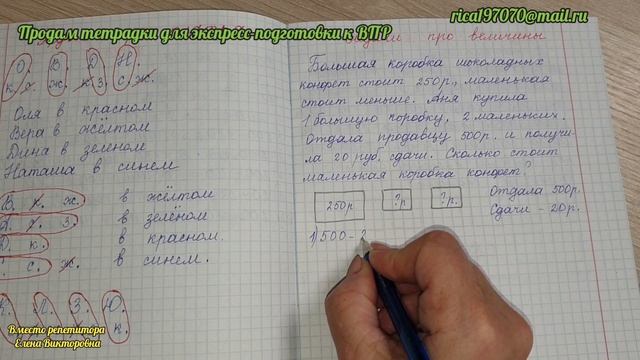 Продам тетрадки для экспресс-подготовки к ВПР
rica197070@mail.ru
про величины
О. В. Д. Н.
к. ж. к. з. с. ж.
Оля в красном
Вера в жёлтом
Дина в зелёном
Наташа в синем
В. ж. в жёлтом
з. в зелёном
Д. к. в красном.
с. ж. в синем.
К. Л. З. Ю.
к.
Большая коробка шоколадных
конфет стоит 250 р., маленькая
стоит меньше. Аня купила
1 большую коробку, 2 маленьких.
Отдала продавцу 500р. и получи-
ла 20 руб. сдачи. Сколько стоит
маленькая коробка конфет?
250р ?р ?р.
Отдала 500р.
Сдачи - 20р.
1) 500 - 2
Вместо репетитора
Елена Викторовна